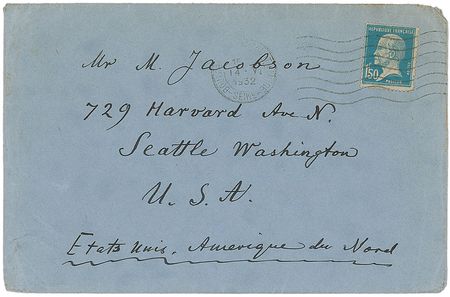 Mr M. Jacobson
14 · VI
1932
REPUBLIQUE FRANÇAISE
1F50
POSTES
729 Harvard Ave N.
Seattle Washington
U. S. A.
Etats Unis. Amerique du Nord